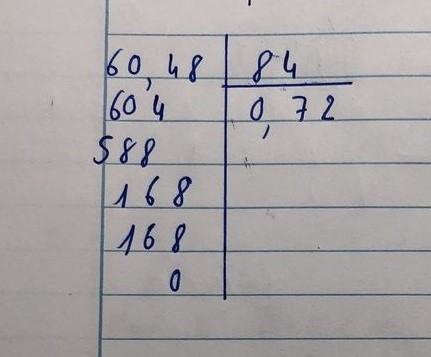 60,48 84
604 0,72
588
168
168
0